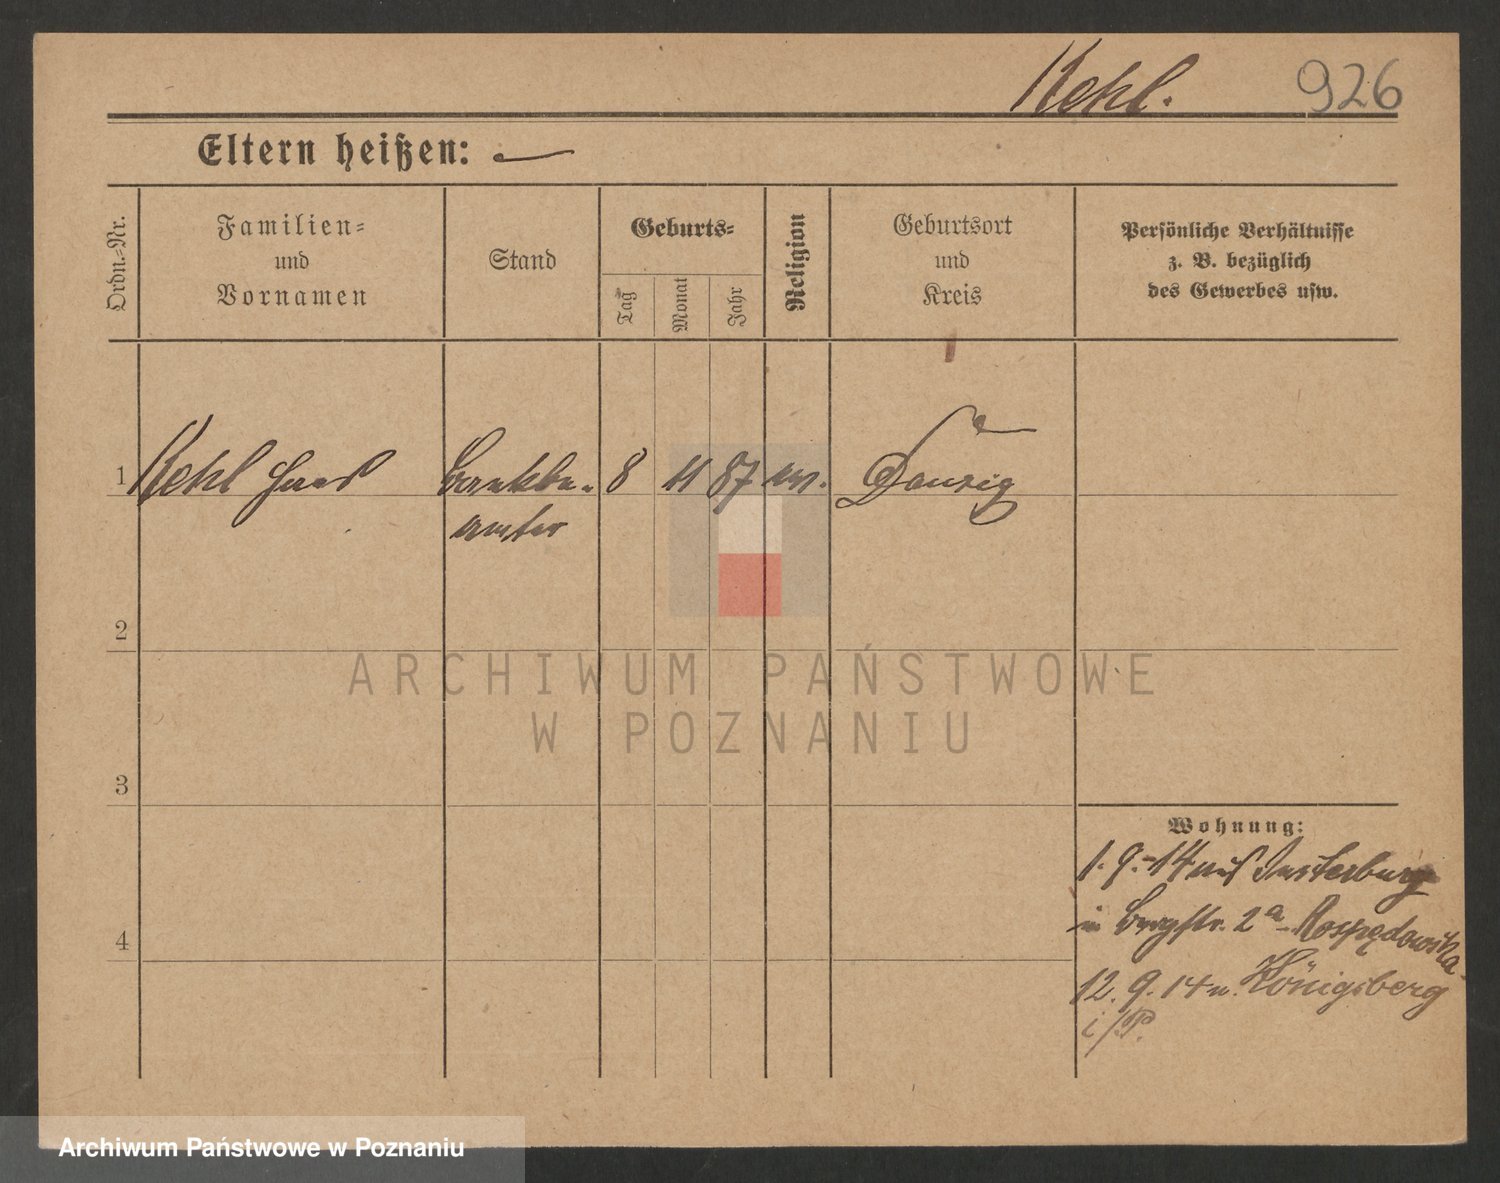 Kehl. 926
Eltern heißen: —
Ordn.-Nr.
Familien-
und
Vornamen
Stand
Geburts-
Tag
Monat
Jahr
Religion
Geburtsort
und
Kreis
Persönliche Verhältnisse
z. B. bezüglich
des Gewerbes usw.
1 Kehl Hans Bankbe- 8 11 87 ev. Danzig
amter
2
3
4
Wohnung:
1.9.-14 aus Insterburg
in Bergstr. 2a Rospędowska
12.9.14 n. Königsberg
i/P.
ARCHIWUM PAŃSTWOWE
W POZNANIU
Archiwum Państwowe w Poznaniu